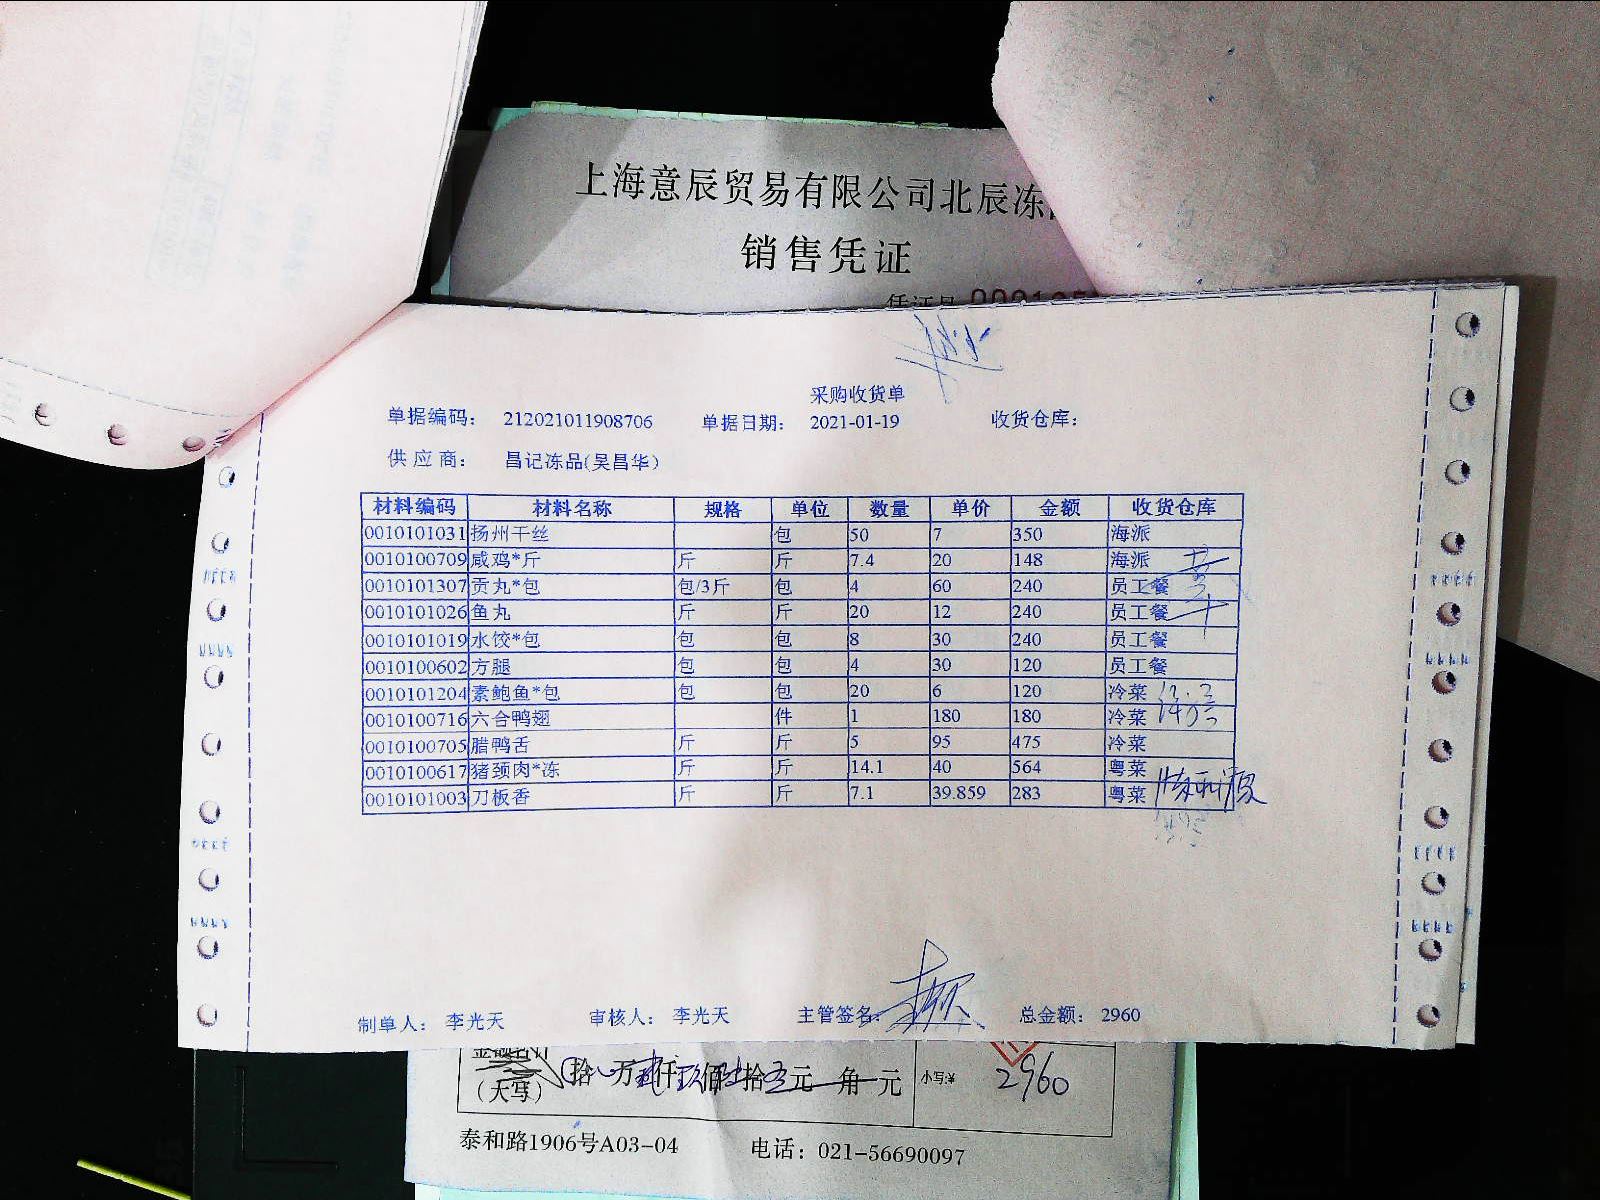 上海意辰贸易有限公司北辰冻
销售凭证
凭证号
采购收货单
单据编码: 212021011908706 单据日期: 2021-01-19 收货仓库:
供应商: 昌记冻品(吴昌华)
材料编码 材料名称 规格 单位 数量 单价 金额 收货仓库
0010101031 扬州干丝 包 50 7 350 海派
0010100709 咸鸡*斤 斤 斤 7.4 20 148 海派
0010101307 贡丸*包 包/3斤 包 4 60 240 员工餐
0010101026 鱼丸 斤 斤 20 12 240 员工餐
0010101019 水饺*包 包 包 8 30 240 员工餐
0010100602 方腿 包 包 4 30 120 员工餐
0010101204 素鲍鱼*包 包 包 20 6 120 冷菜
0010100716 六合鸭翅 件 1 180 180 冷菜
0010100705 腊鸭舌 斤 斤 5 95 475 冷菜
0010100617 猪颈肉*冻 斤 斤 14.1 40 564 粤菜
0010101003 刀板香 斤 斤 7.1 39.859 283 粤菜
制单人: 李光天 审核人: 李光天 主管签名: 总金额: 2960
(大写) 拾 万 仟 佰 拾 元 角 元 小写:¥ 2960
泰和路1906号A03-04 电话: 021-56690097